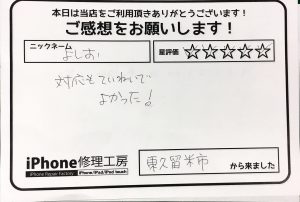 本日は当店をご利用頂きありがとうございます!
ご感想をお願いします!
ニックネーム
よしお
星評価 ☆☆☆☆☆
対応もていねいで
よかった!
iPhone修理工房
iPhone Repair Factory iPhone/iPad/iPod touch
東久留米市 から来ました